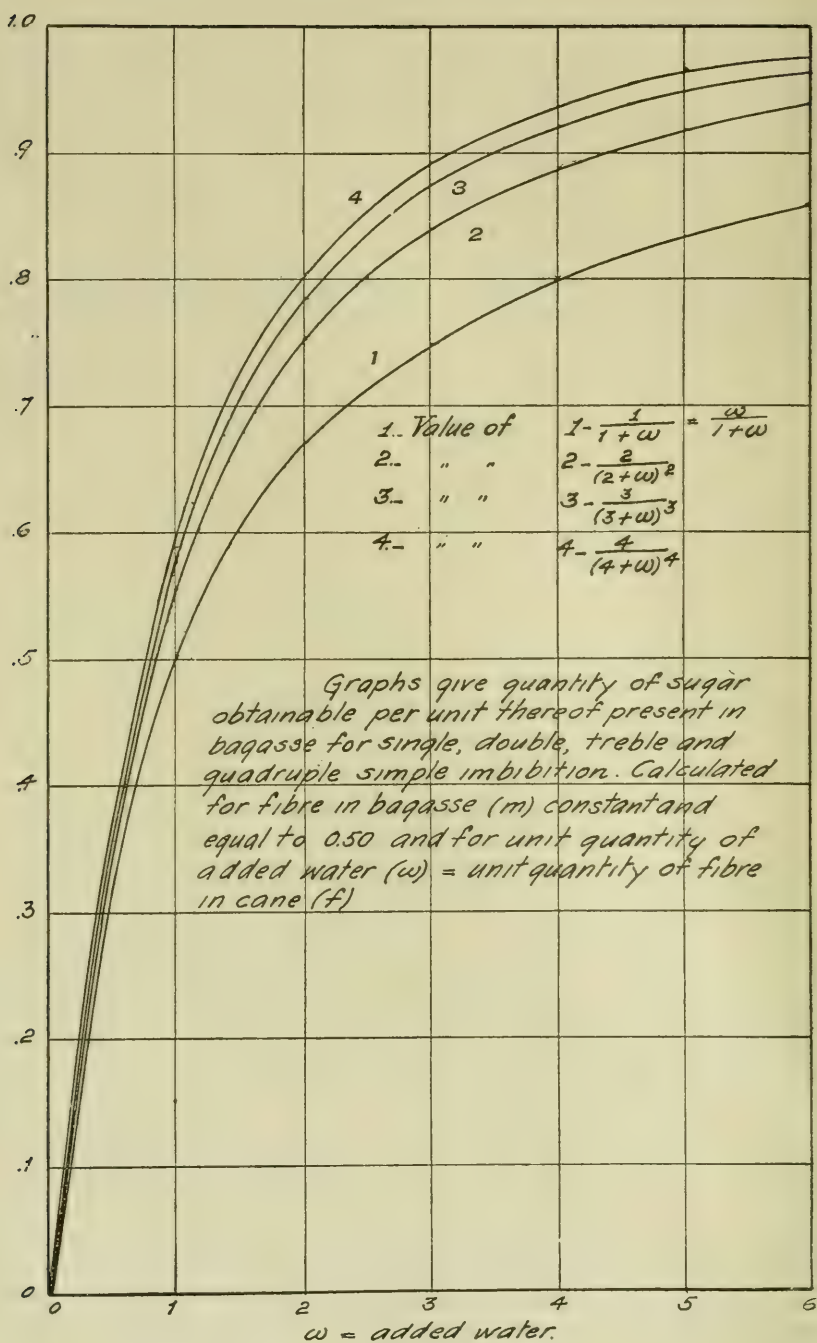 1.0
.9
.8
.7
.6
.5
.4
.3
.2
.1
0
4
3
2
1
1.. Value of 1 - \frac{1}{1+ω} = \frac{ω}{1+ω}
2.. " " 2 - \frac{2}{(2+ω)^2}
3.. " " 3 - \frac{3}{(3+ω)^3}
4.. " " 4 - \frac{4}{(4+ω)^4}
Graphs give quantity of sugar
obtainable per unit thereof present in
bagasse for single, double, treble and
quadruple simple imbibition. Calculated
for fibre in bagasse (m) constant and
equal to 0.50 and for unit quantity of
added water (ω) = unit quantity of fibre
in cane (f)
0 1 2 3 4 5 6
ω = added water.